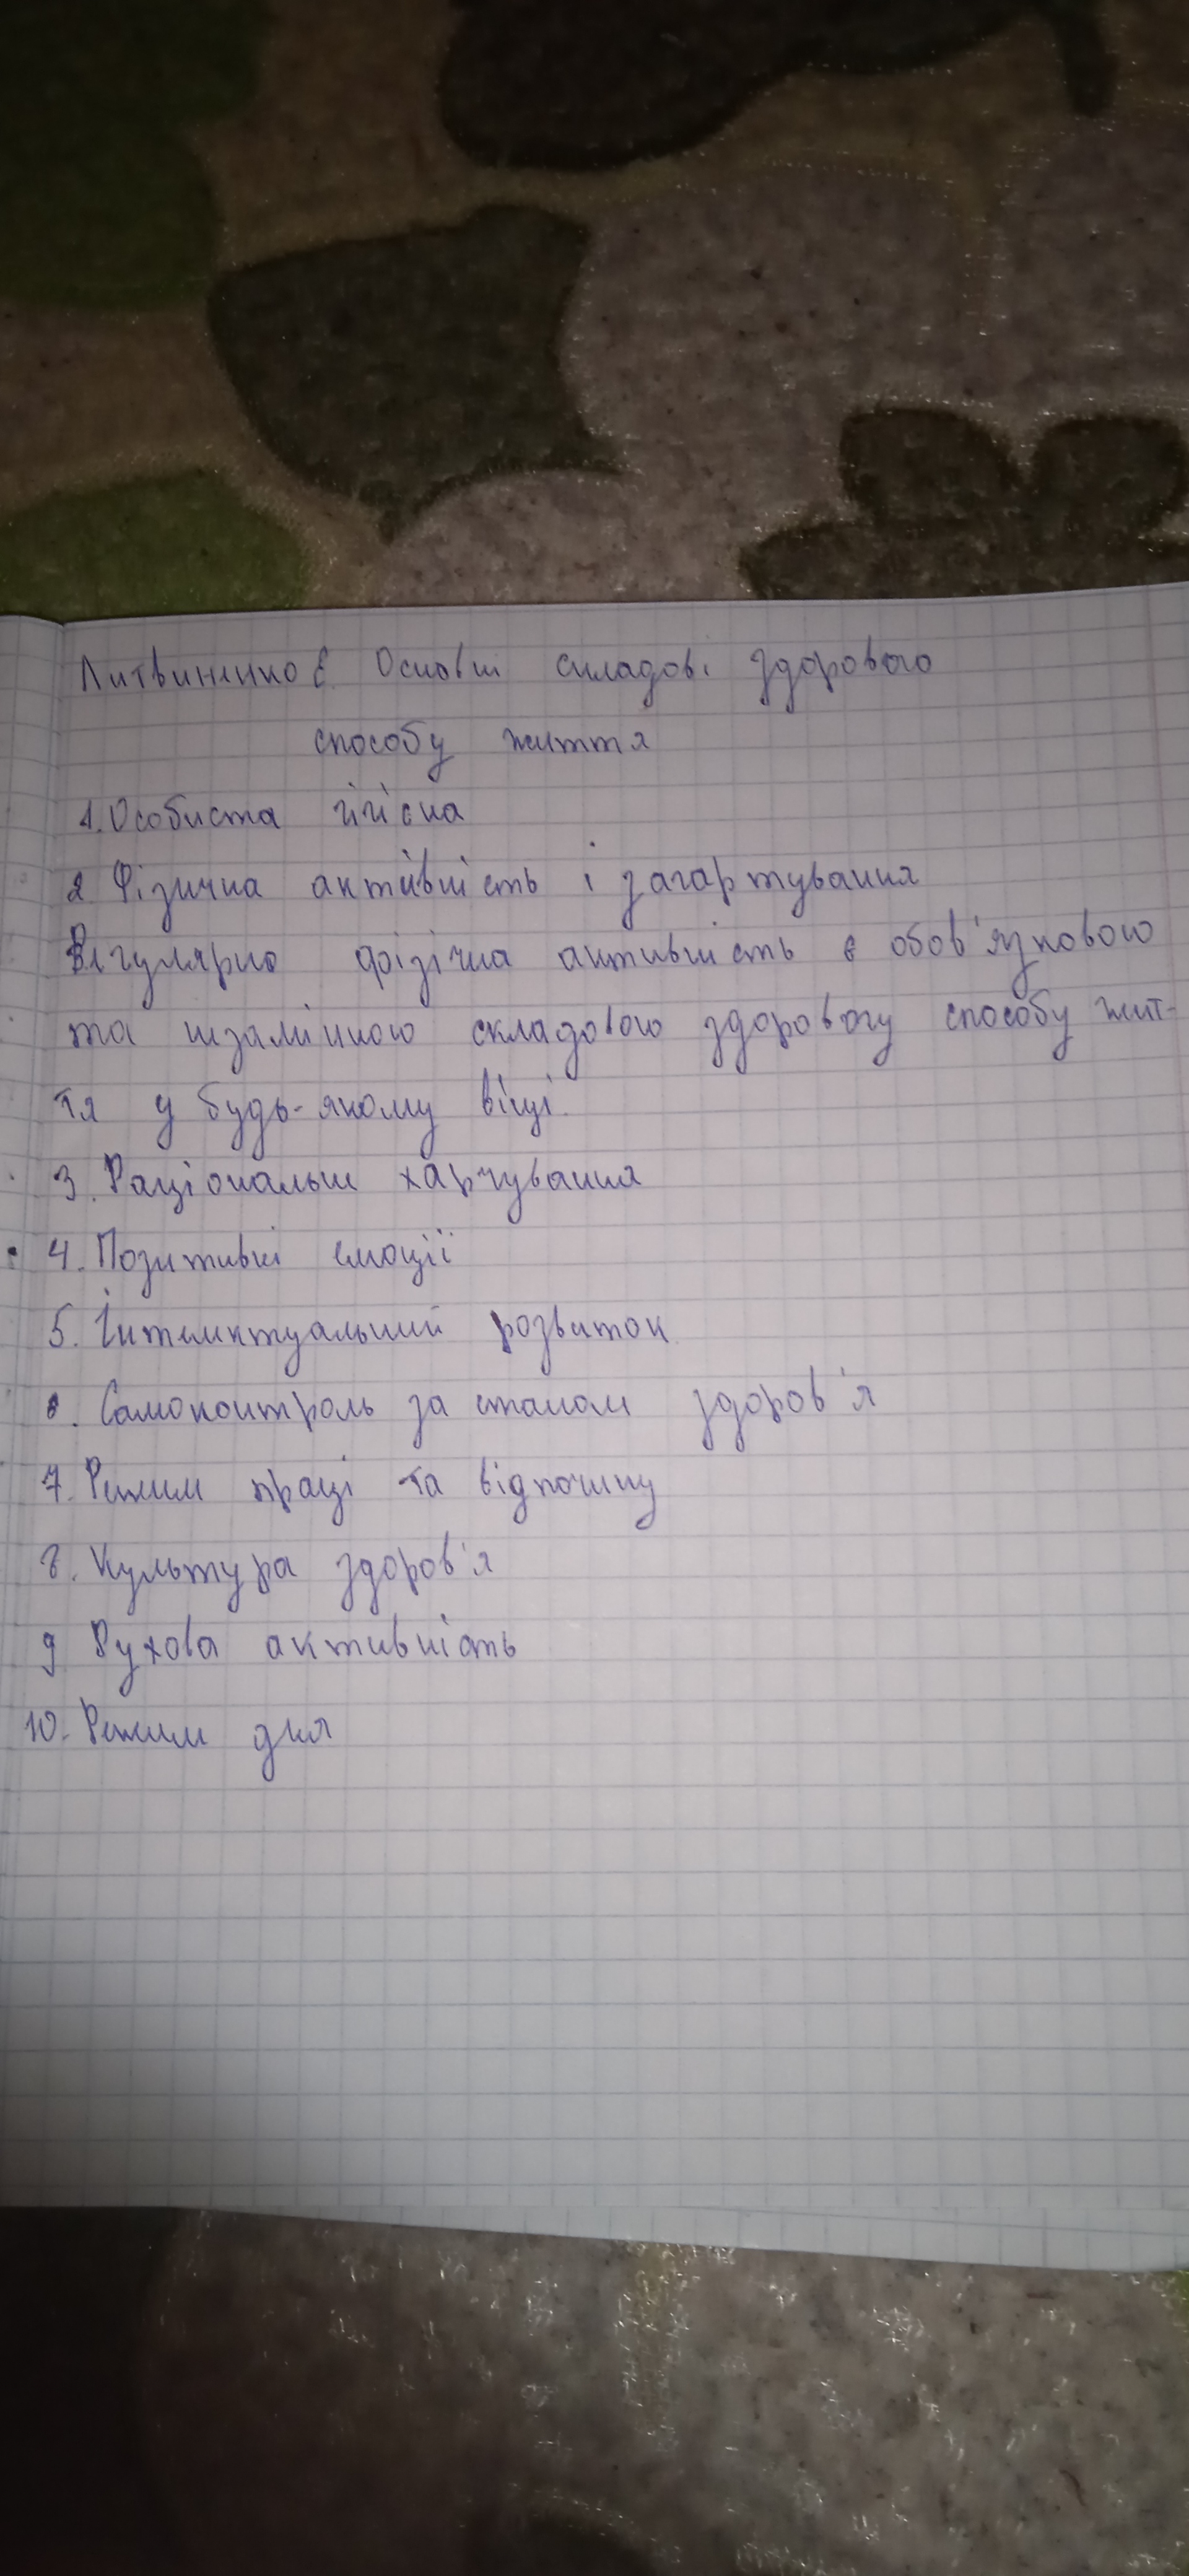 Литвиненко Є Основні складові здорового
способу життя
1. Особиста гігієна
2 Фізична активність і загартування
Регулярно фізічна активність є обов'язковою
та незамінною складовою здоровогу способу жит-
тя у будь-якому віці.
3. Раціональне харчування
4. Позитивні емоції
5. Інтелектуальний розвиток
6. Самоконтроль за станом здоров'я
7. Режим праці та відпочинку
8. Культура здоров'я
9 Рухова активність
10. Режим дня